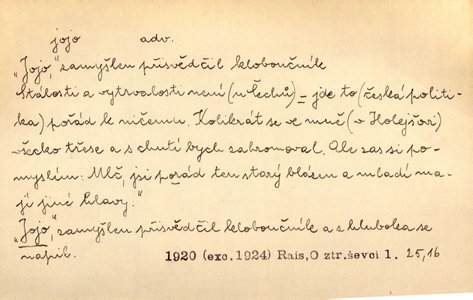 jojo adv.
"Jojo," zamyšlen přisvědčil kloboučník
Stálosti a vytrvalosti není (u Čechů) – jde to (česká politi-
ka) pořád k ničemu. Kolikrát se ve mně (v Holejšovi)
všecko třese a s chutí bych zahromoval. Ale zas si po-
myslím: Mlč, jsi pořád ten starý blázen a mladí ma-
jí jiné hlavy."
"Jojo," zamyšlen přisvědčil kloboučník a z hluboka se
napil. 1920 (exc. 1924) Rais, O ztr. ševci 1. 25,16